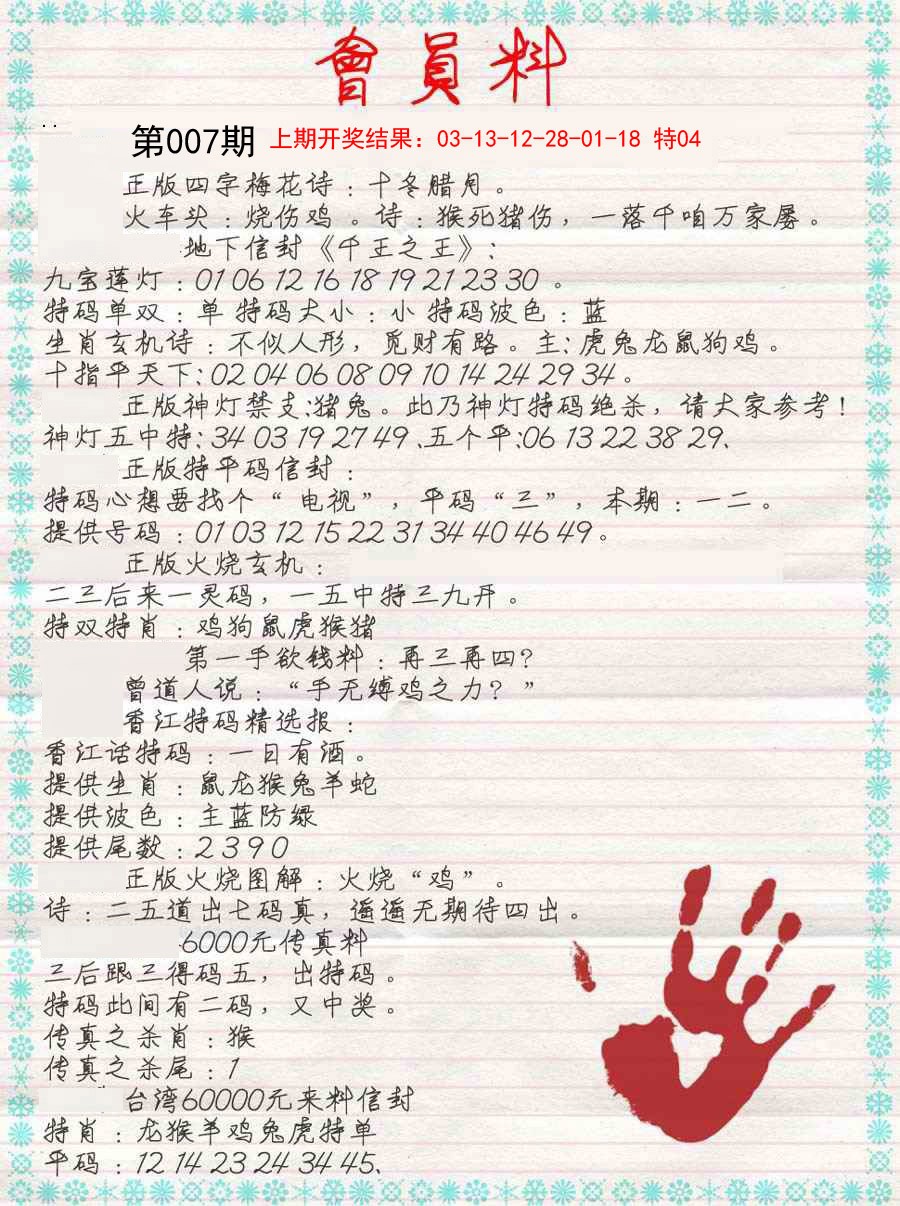 會員料
第007期 上期开奖结果：03-13-12-28-01-18 特04
正版四字梅花诗：十冬腊月。
火车头：烧伤鸡。诗：猴死猪伤，一落千咱万家屡。
地下信封《千王之王》：
九宝莲灯：01 06 12 16 18 19 21 23 30 。
特码单双：单 特码大小：小 特码波色：蓝
生肖玄机诗：不似人形，觅财有路。主：虎兔龙鼠狗鸡。
十指平天下：02 04 06 08 09 10 14 24 29 34。
正版神灯禁支：猪兔。此乃神灯特码绝杀，请大家参考！
神灯五中特：34 03 19 27 49、五个平：06 13 22 38 29、
正版特平码信封：
特码心想要找个“电视”，平码“三”，本期：一二。
提供号码：01 03 12 15 22 31 34 40 46 49。
正版火烧玄机：
二三后来一灵码，一五中特三九开。
特双特肖：鸡狗鼠虎猴猪
第一手欲钱料：再三再四？
曾道人说：“手无缚鸡之力？”
香江特码精选报：
香江话特码：一日有酒。
提供生肖：鼠龙猴兔羊蛇
提供波色：主蓝防绿
提供尾数：2 3 9 0
正版火烧图解：火烧“鸡”。
诗：二五道出七码真，遥遥无期待四出。
6000元传真料
三后跟三得码五，出特码。
特码此间有二码，又中奖。
传真之杀肖：猴
传真之杀尾：1
台湾60000元来料信封
特肖：龙猴羊鸡兔虎特单
平码：12 14 23 24 34 45、